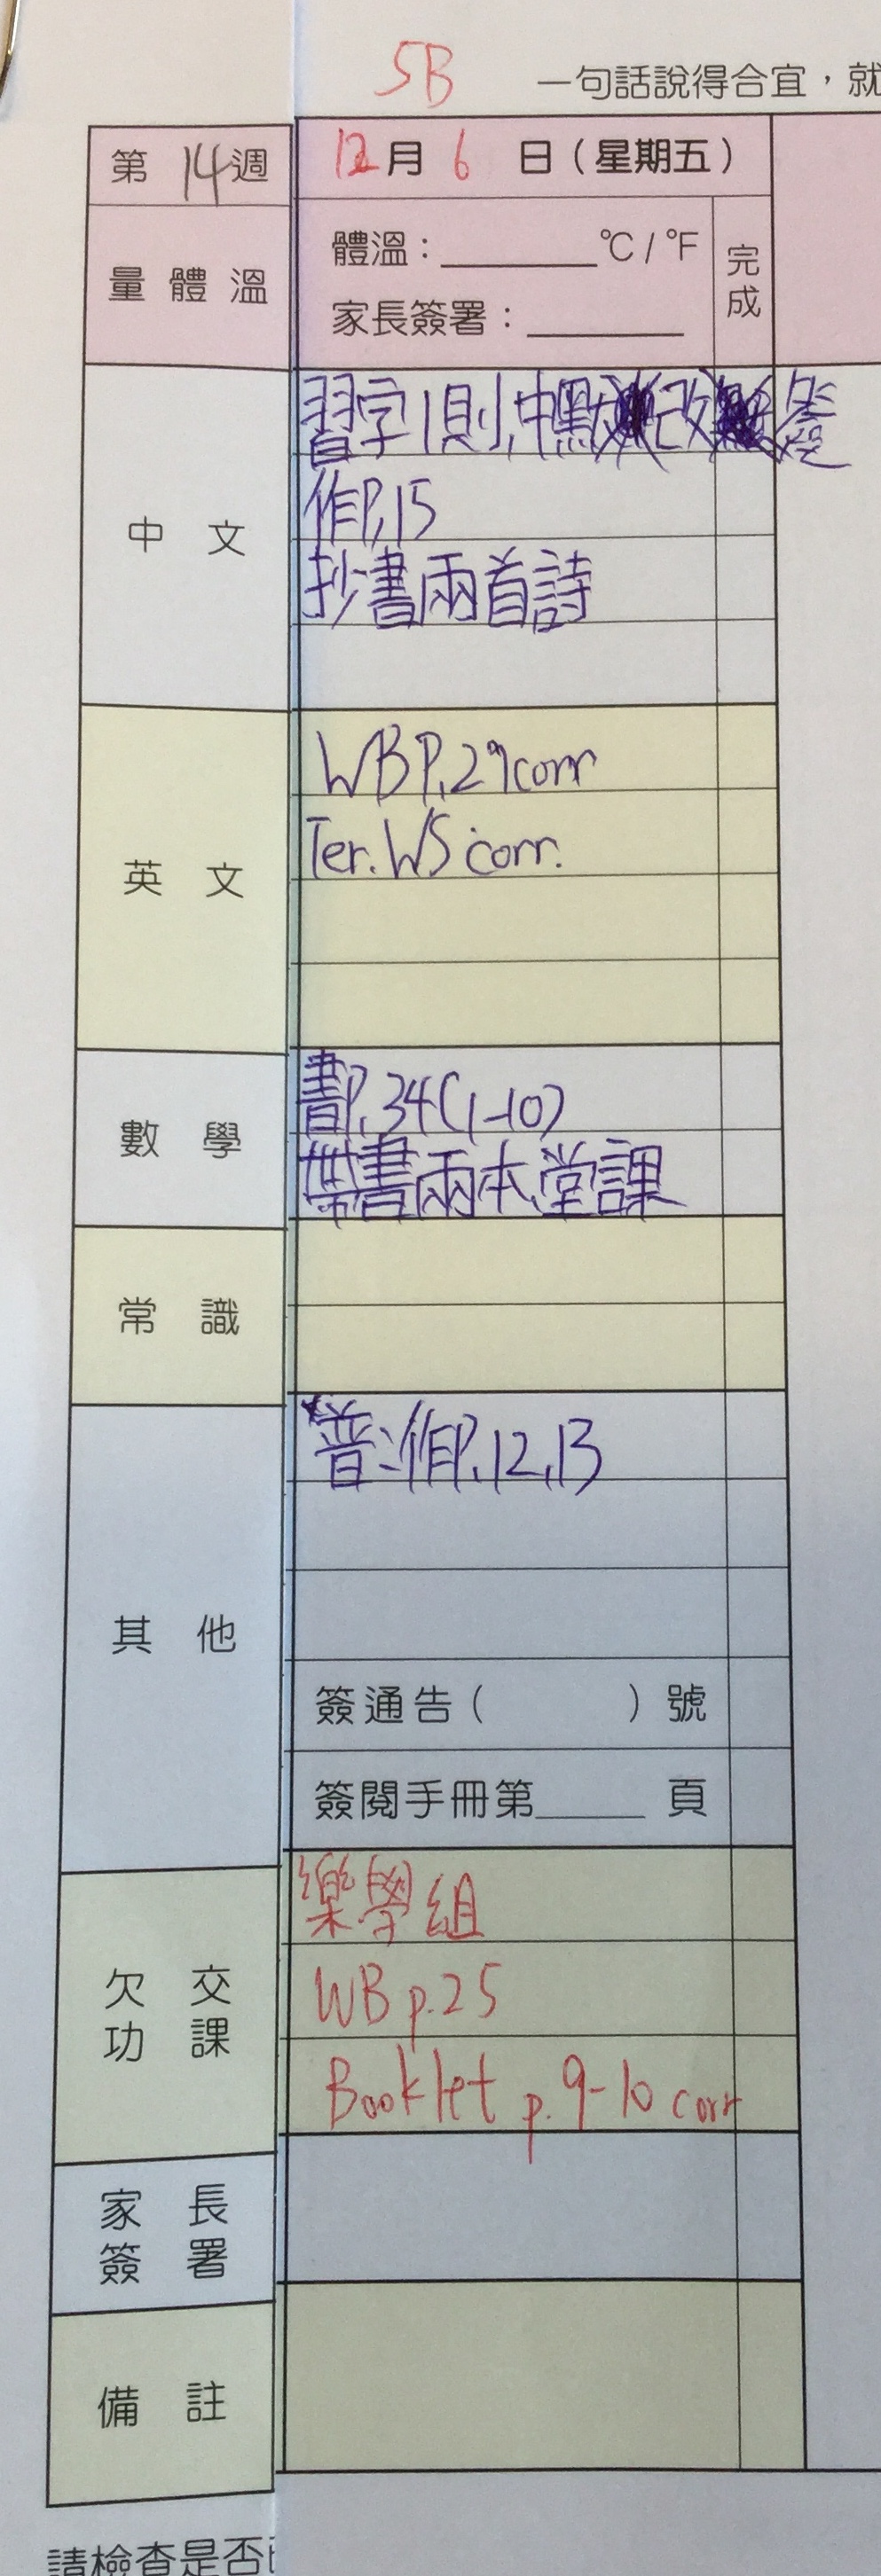 5B
一句話說得合宜，就
第 14 週
12月 6 日（星期五）
量體溫
體溫：______℃/℉
家長簽署：______
完成
中文
習字1則,中默改簽
作P.15
抄書兩首詩
英文
WB P.29corr
Ter. WS corr.
數學
書P.34(1-10)
帶書兩本,堂課
常識
其他
普:作P.12,13
簽通告（ ）號
簽閱手冊第____頁
欠交功課
樂學組
WB p.25
Booklet p.9-10 corr
家長簽署
備註
請檢查是否